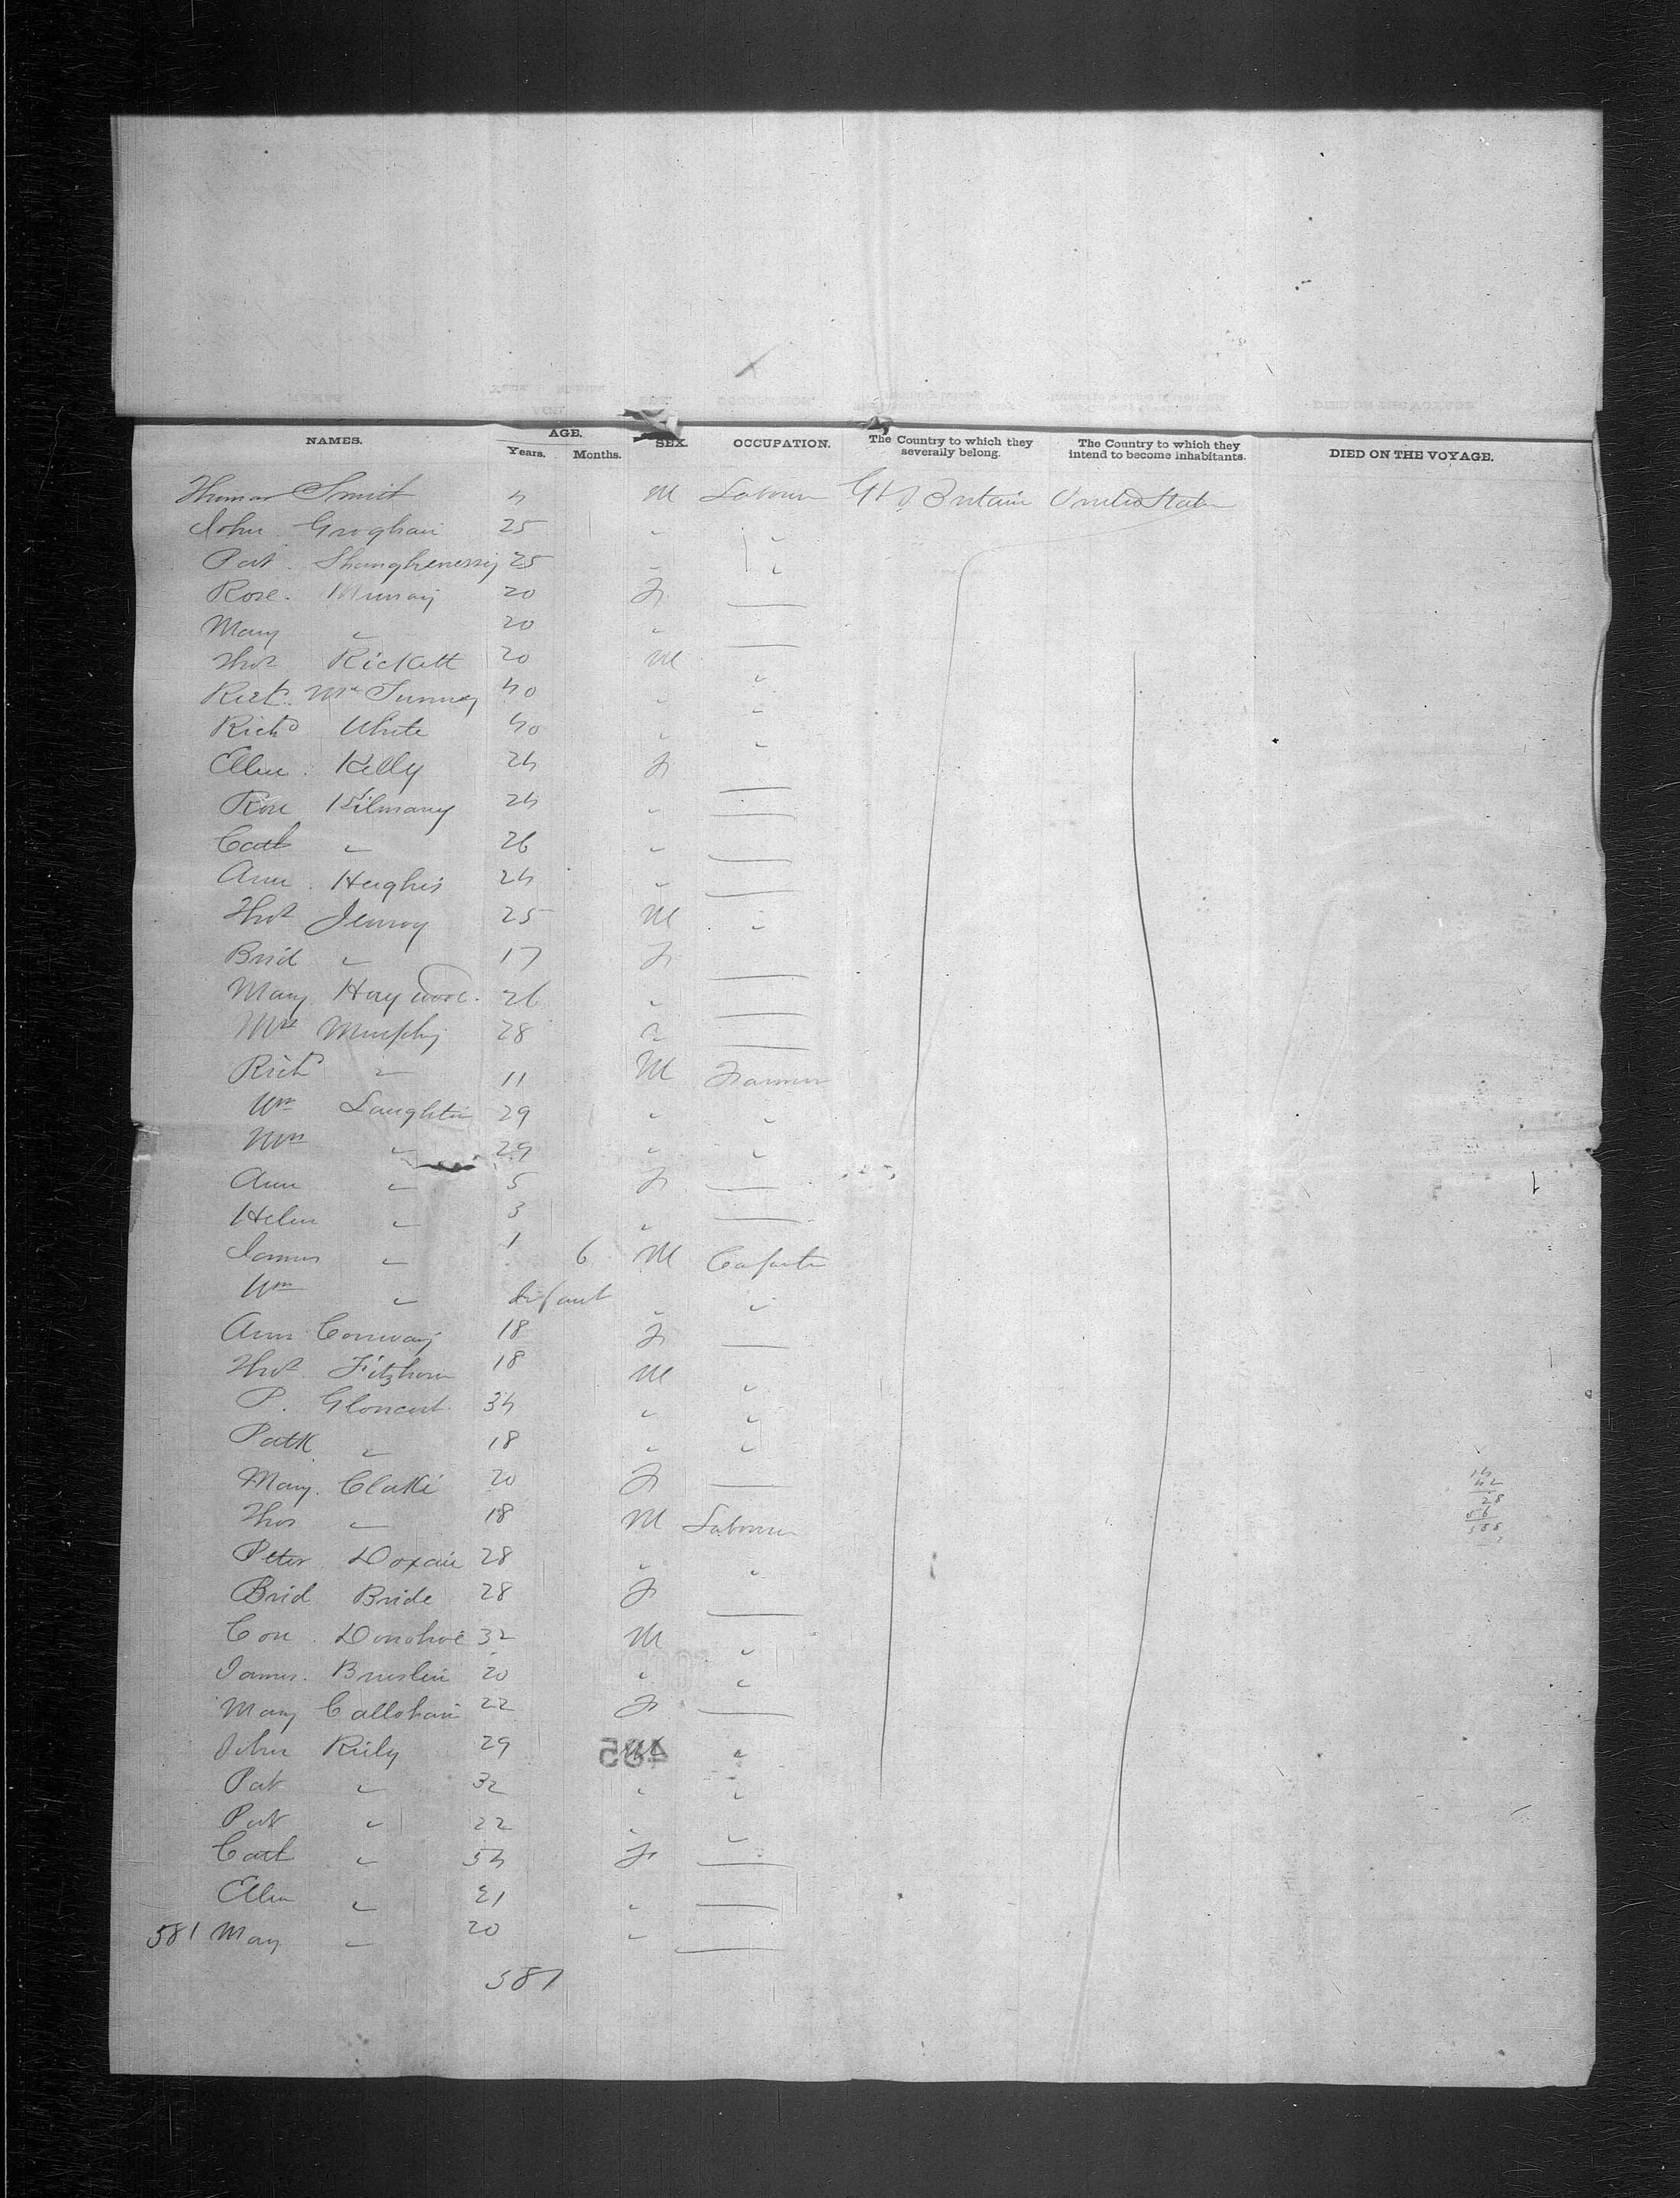 NAMES. AGE. Years. Months. SEX. OCCUPATION. The Country to which they severally belong. The Country to which they intend to become inhabitants. DIED ON THE VOYAGE.
Thomas Smith 4 M Labourer Gt Britain United States
John Groghan 25 "
Pat Shaughenessy 25 " "
Rose Murray 20 F —
Mary " 20 " —
Thos Rickett 20 M "
40 " "
Richd White 40 " "
Ellen Kelly 24 F —
Rose Kilmany 24 " —
Cath " 26 " —
Ann Hughes 24 " —
Thos 25 M "
Brid " 17 F —
Mary Haywood 26 " —
Mrs Murphy 28 " —
Richd " 11 M Farmer
Wm Laughlin 29 " "
" 29 " "
Ann " 5 F —
Helen " 3 " —
James " 1 6 M
Wm " Infant " "
Ann Conway 18 F —
Thos 18 M "
P. 34 " "
Patk " 18 " "
Mary Clarke 20 F —
Thos " 18 M Labourer
Peter 28 " "
Brid Bride 28 F —
Con Donohoe 32 M "
James Breslin 20 " "
Mary Callohan 22 F —
John Riely 29 M "
Pat " 32 " "
Pat " 22 " "
Cath " 54 F —
Ellen " 21 " —
581 Mary " 20 " —
581
485